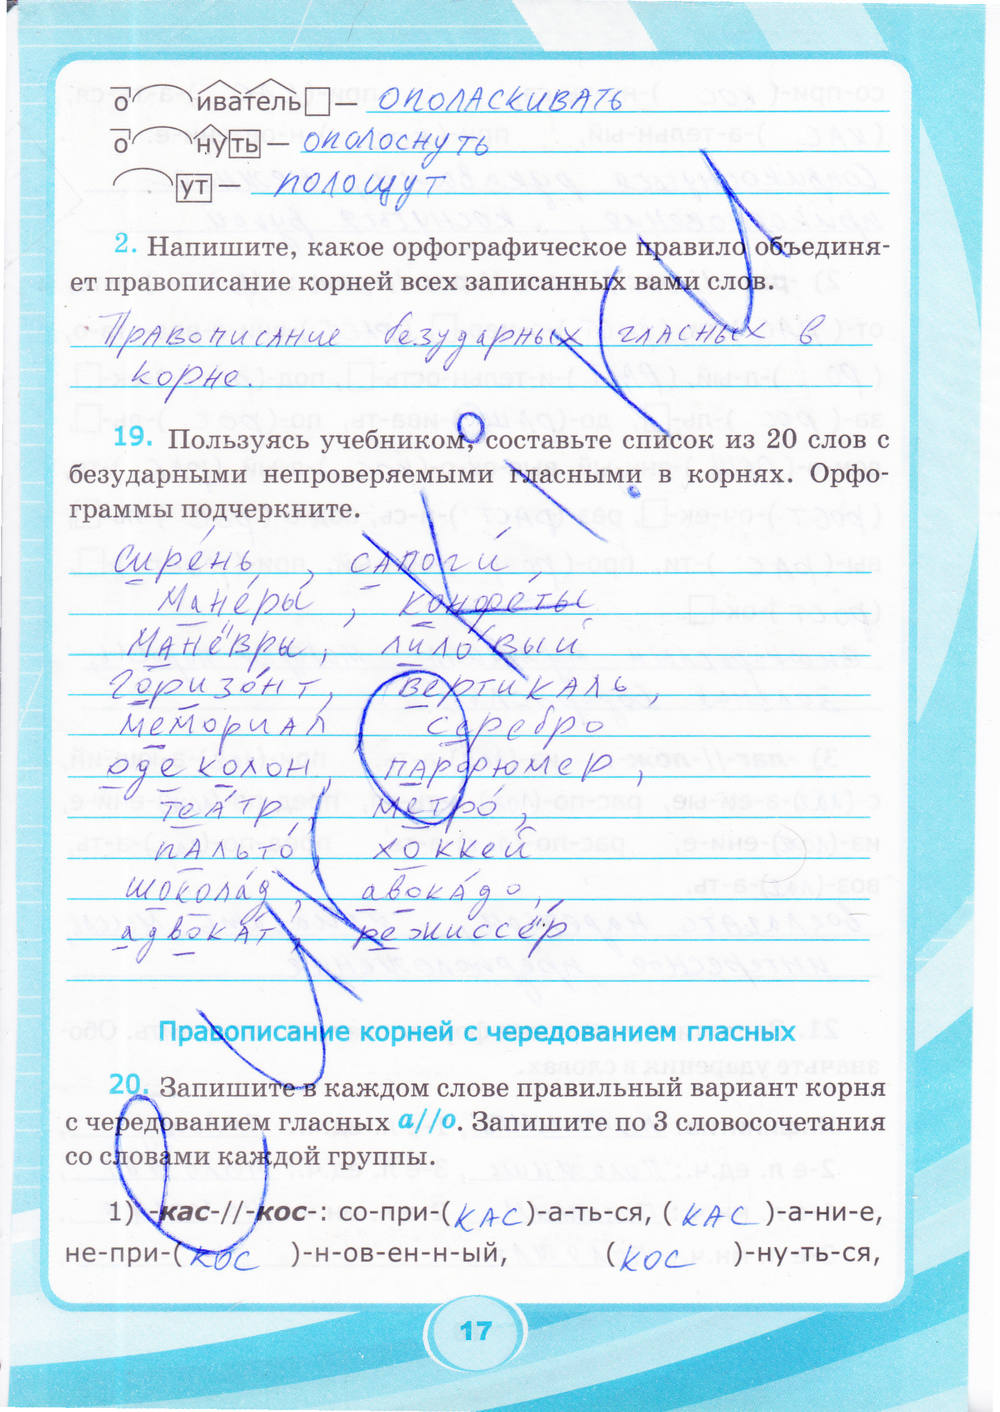 о иватель — ополаскивать
о нуть — ополоснуть
ут — полощут
2. Напишите, какое орфографическое правило объединя-
ет правописание корней всех записанных вами слов.
Правописание безударных гласных в
корне.
19. Пользуясь учебником, составьте список из 20 слов с
безударными непроверяемыми гласными в корнях. Орфо-
граммы подчеркните.
Сире́нь, сапоги́
Мане́ры, конфе́ты
Манёвры лило́вый
Горизо́нт, вертикаль,
мемориал серебро
одеколон, парфюмер,
теа́тр, метро́,
пальто́, хоккей
шокола́д, авока́до,
адвока́т, режиссёр
Правописание корней с чередованием гласных
20. Запишите в каждом слове правильный вариант корня
с чередованием гласных а//о. Запишите по 3 словосочетания
со словами каждой группы.
1) -кас-//-кос-: со-при-(кас)-а-ть-ся, (кас)-а-ни-е,
не-при-(кос)-н-ов-ен-н-ый, (кос)-ну-ть-ся,
17